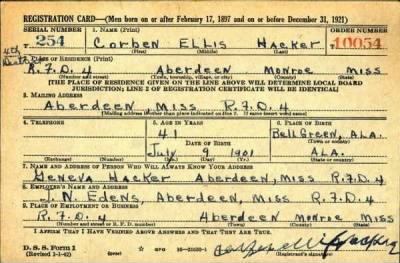 REGISTRATION CARD—(Men born on or after February 17, 1897 and on or before December 31, 1921)
SERIAL NUMBER 1. NAME (Print) ORDER NUMBER
T 254 Corben Ellis Hacker T 10054
(First) (Middle) (Last)
4th
2. PLACE OF RESIDENCE (Print)
R.F.D. 4 Aberdeen Monroe Miss
(Number and street) (Town, township, village, or city) (County) (State)
[THE PLACE OF RESIDENCE GIVEN ON THE LINE ABOVE WILL DETERMINE LOCAL BOARD
JURISDICTION; LINE 2 OF REGISTRATION CERTIFICATE WILL BE IDENTICAL]
3. MAILING ADDRESS
Aberdeen, Miss R.F.D. 4
(Mailing address if other than place indicated on line 2. If same insert word same)
4. TELEPHONE 5. AGE IN YEARS 6. PLACE OF BIRTH
41 Bell Green, Ala.
DATE OF BIRTH (Town or county)
July 9 1901 Ala.
(Exchange) (Number) (Mo.) (Day) (Yr.) (State or country)
7. NAME AND ADDRESS OF PERSON WHO WILL ALWAYS KNOW YOUR ADDRESS
Geneva Hacker Aberdeen, Miss R.F.D. 4
8. EMPLOYER'S NAME AND ADDRESS
J. N. Edens, Aberdeen, Miss R.F.D. 4
9. PLACE OF EMPLOYMENT OR BUSINESS
R.F.D. 4 Aberdeen Monroe Miss
(Number and street or R. F. D. number) (Town) (County) (State)
I AFFIRM THAT I HAVE VERIFIED ABOVE ANSWERS AND THAT THEY ARE TRUE.
D. S. S. Form 1
(Revised 1-1-42) (over) GPO 16—21630-1
(Registrant's signature)